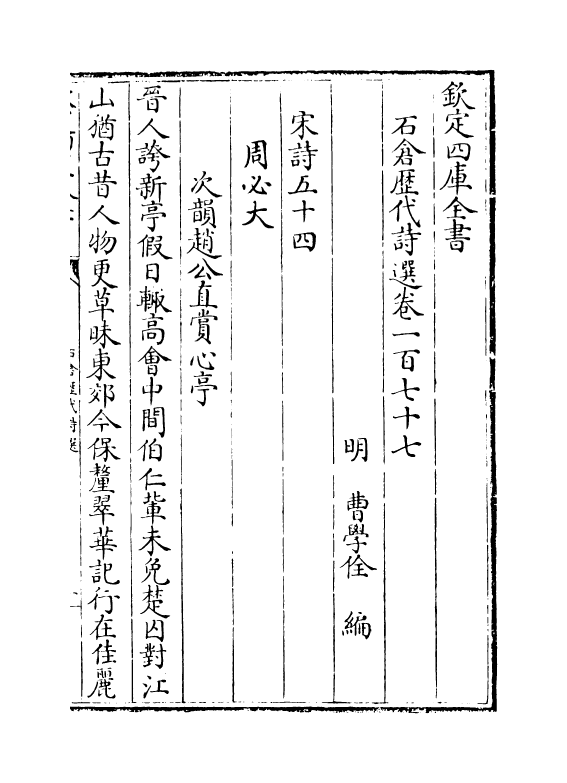 欽定四庫全書
石倉歴代詩選卷一百七十七
明 曹學佺 編
宋詩五十四
周必大
次韻趙公直賞心亭
晉人誇新亭假日輙高會中間伯仁軰未免楚囚對江
山猶古昔人物更草昧東郊今保釐翠華記行在佳麗
石倉歴代詩選